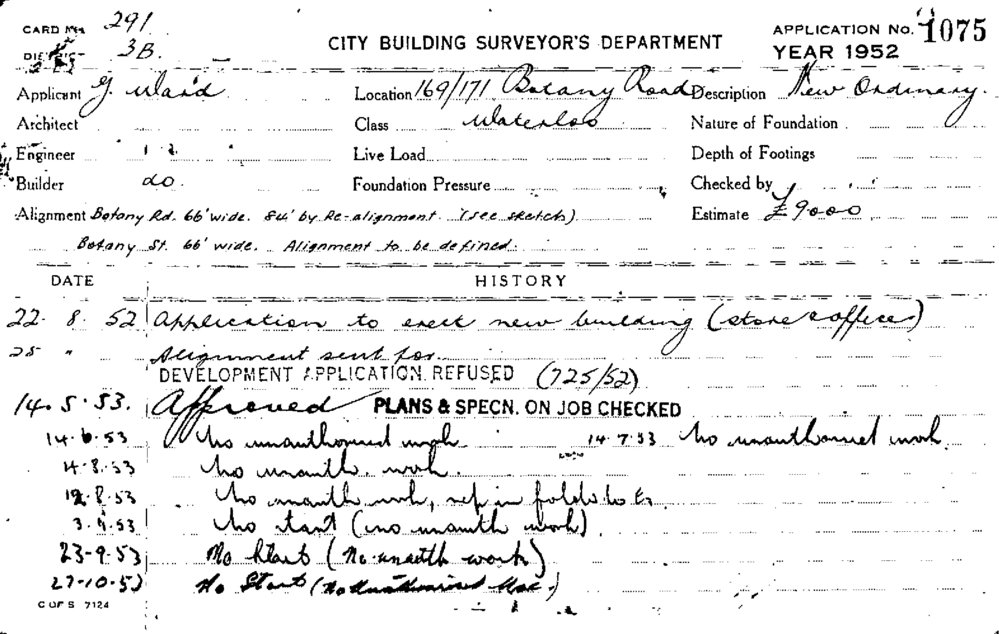 CARD No. 291
DISTRICT 3B.
CITY BUILDING SURVEYOR'S DEPARTMENT
APPLICATION No. 1075
YEAR 1952
Applicant G. Ward Location 169/171 Botany Road Description New Ordinary.
Architect Class Waterloo Nature of Foundation
Engineer Live Load Depth of Footings
Builder do. Foundation Pressure Checked by
Alignment Botany Rd. 66' wide. 84' by Re-alignment. (see sketch) Estimate £9000
Botany St. 66' wide. Alignment to be defined.
DATE HISTORY
22. 8. 52 Application to erect new building (store & offices)
25 " Alignment sent for
DEVELOPMENT APPLICATION REFUSED (725/52)
14. 5. 53. Approved PLANS & SPECN. ON JOB CHECKED
14.6.53 No unauthorised work 14.7.53 No unauthorised work
4.8.53 No unauth. work.
12.8.53 No unauth work, rep in folder
3.9.53 No start (no unauth work)
23-9-53 No Start (No unauth work)
27-10-53 No Start (No Unauthorised Use.)
C OF S 7124